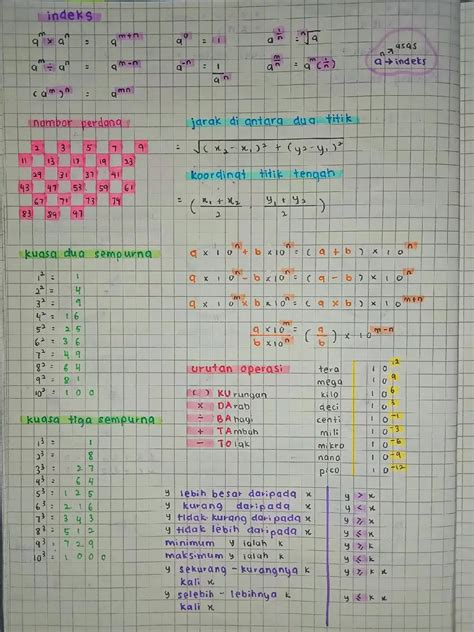 indeks
aᵐ × aⁿ = aᵐ⁺ⁿ a⁰ = 1 a^(1/n) = ⁿ√a
aᵐ ÷ aⁿ = aᵐ⁻ⁿ a⁻ⁿ = 1/aⁿ a^(m/n) = a^m(1/n)
(aᵐ)ⁿ = aᵐⁿ
n → asas
a → indeks
nombor perdana
2 3 5 7 9
11 13 17 19 23
29 31 37 41
43 47 53 59 61
67 71 73 79
83 89 97
jarak di antara dua titik
= √(x₂ - x₁)² + (y₂ - y₁)²
koordinat titik tengah
= (x₁ + x₂ / 2 , y₁ + y₂ / 2)
kuasa dua sempurna
1² = 1
2² = 4
3² = 9
4² = 16
5² = 25
6² = 36
7² = 49
8² = 64
9² = 81
10² = 100
a × 10ⁿ + b × 10ⁿ = (a + b) × 10ⁿ
a × 10ⁿ - b × 10ⁿ = (a - b) × 10ⁿ
a × 10ᵐ × b × 10ⁿ = (a × b) × 10ᵐ⁺ⁿ
a × 10ᵐ / b × 10ⁿ = (a/b) × 10ᵐ⁻ⁿ
urutan operasi
( ) KUrungan
× DArab
÷ BAhagi
+ TAmbah
- TOlak
tera 10¹²
mega 10⁹
kilo 10⁶
deci 10³
centi 10⁻¹
mili 10⁻³
mikro 10⁻⁶
nano 10⁻⁹
pico 10⁻¹²
kuasa tiga sempurna
1³ = 1
2³ = 8
3³ = 27
4³ = 64
5³ = 125
6³ = 216
7³ = 343
8³ = 512
9³ = 729
10³ = 1000
y lebih besar daripada x y > x
y kurang daripada x y < x
y tidak kurang daripada x y ≥ x
y tidak lebih daripada x y ≤ x
minimum y ialah k y ≥ k
maksimum y ialah k y ≤ k
y sekurang - kurangnya k y ≥ k x
kali x
y selebih - lebihnya k y ≤ k x
kali x